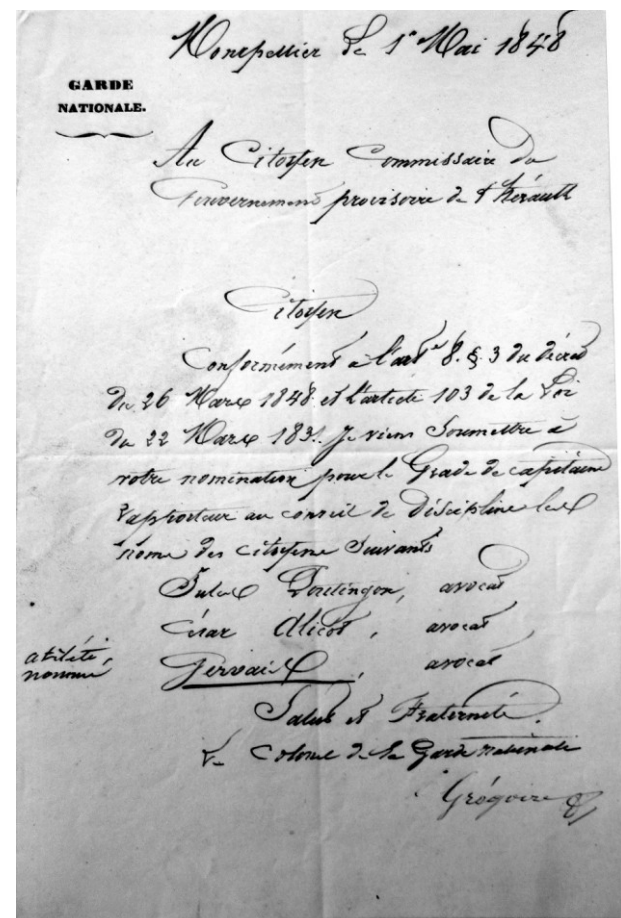 Montpellier le 1er Mai 1848
GARDE
NATIONALE.
Au Citoyen Commissaire du
Gouvernement provisoire de l'hérault
Citoyen
Conformément à l'art 8. §. 3 du décret
du 26 Mars 1848 et l'article 103 de la Loi
du 22 Mars 1831. Je viens Soumettre à
votre nomination pour le Grade de capitaine
rapporteur au conseil de discipline les
noms des citoyens Suivants
Jules avocat
César Alicot, avocat
a été
nommé
Gervais, avocat
Salut et Fraternité.
Le Colonel de la Garde nationale
Grégoire